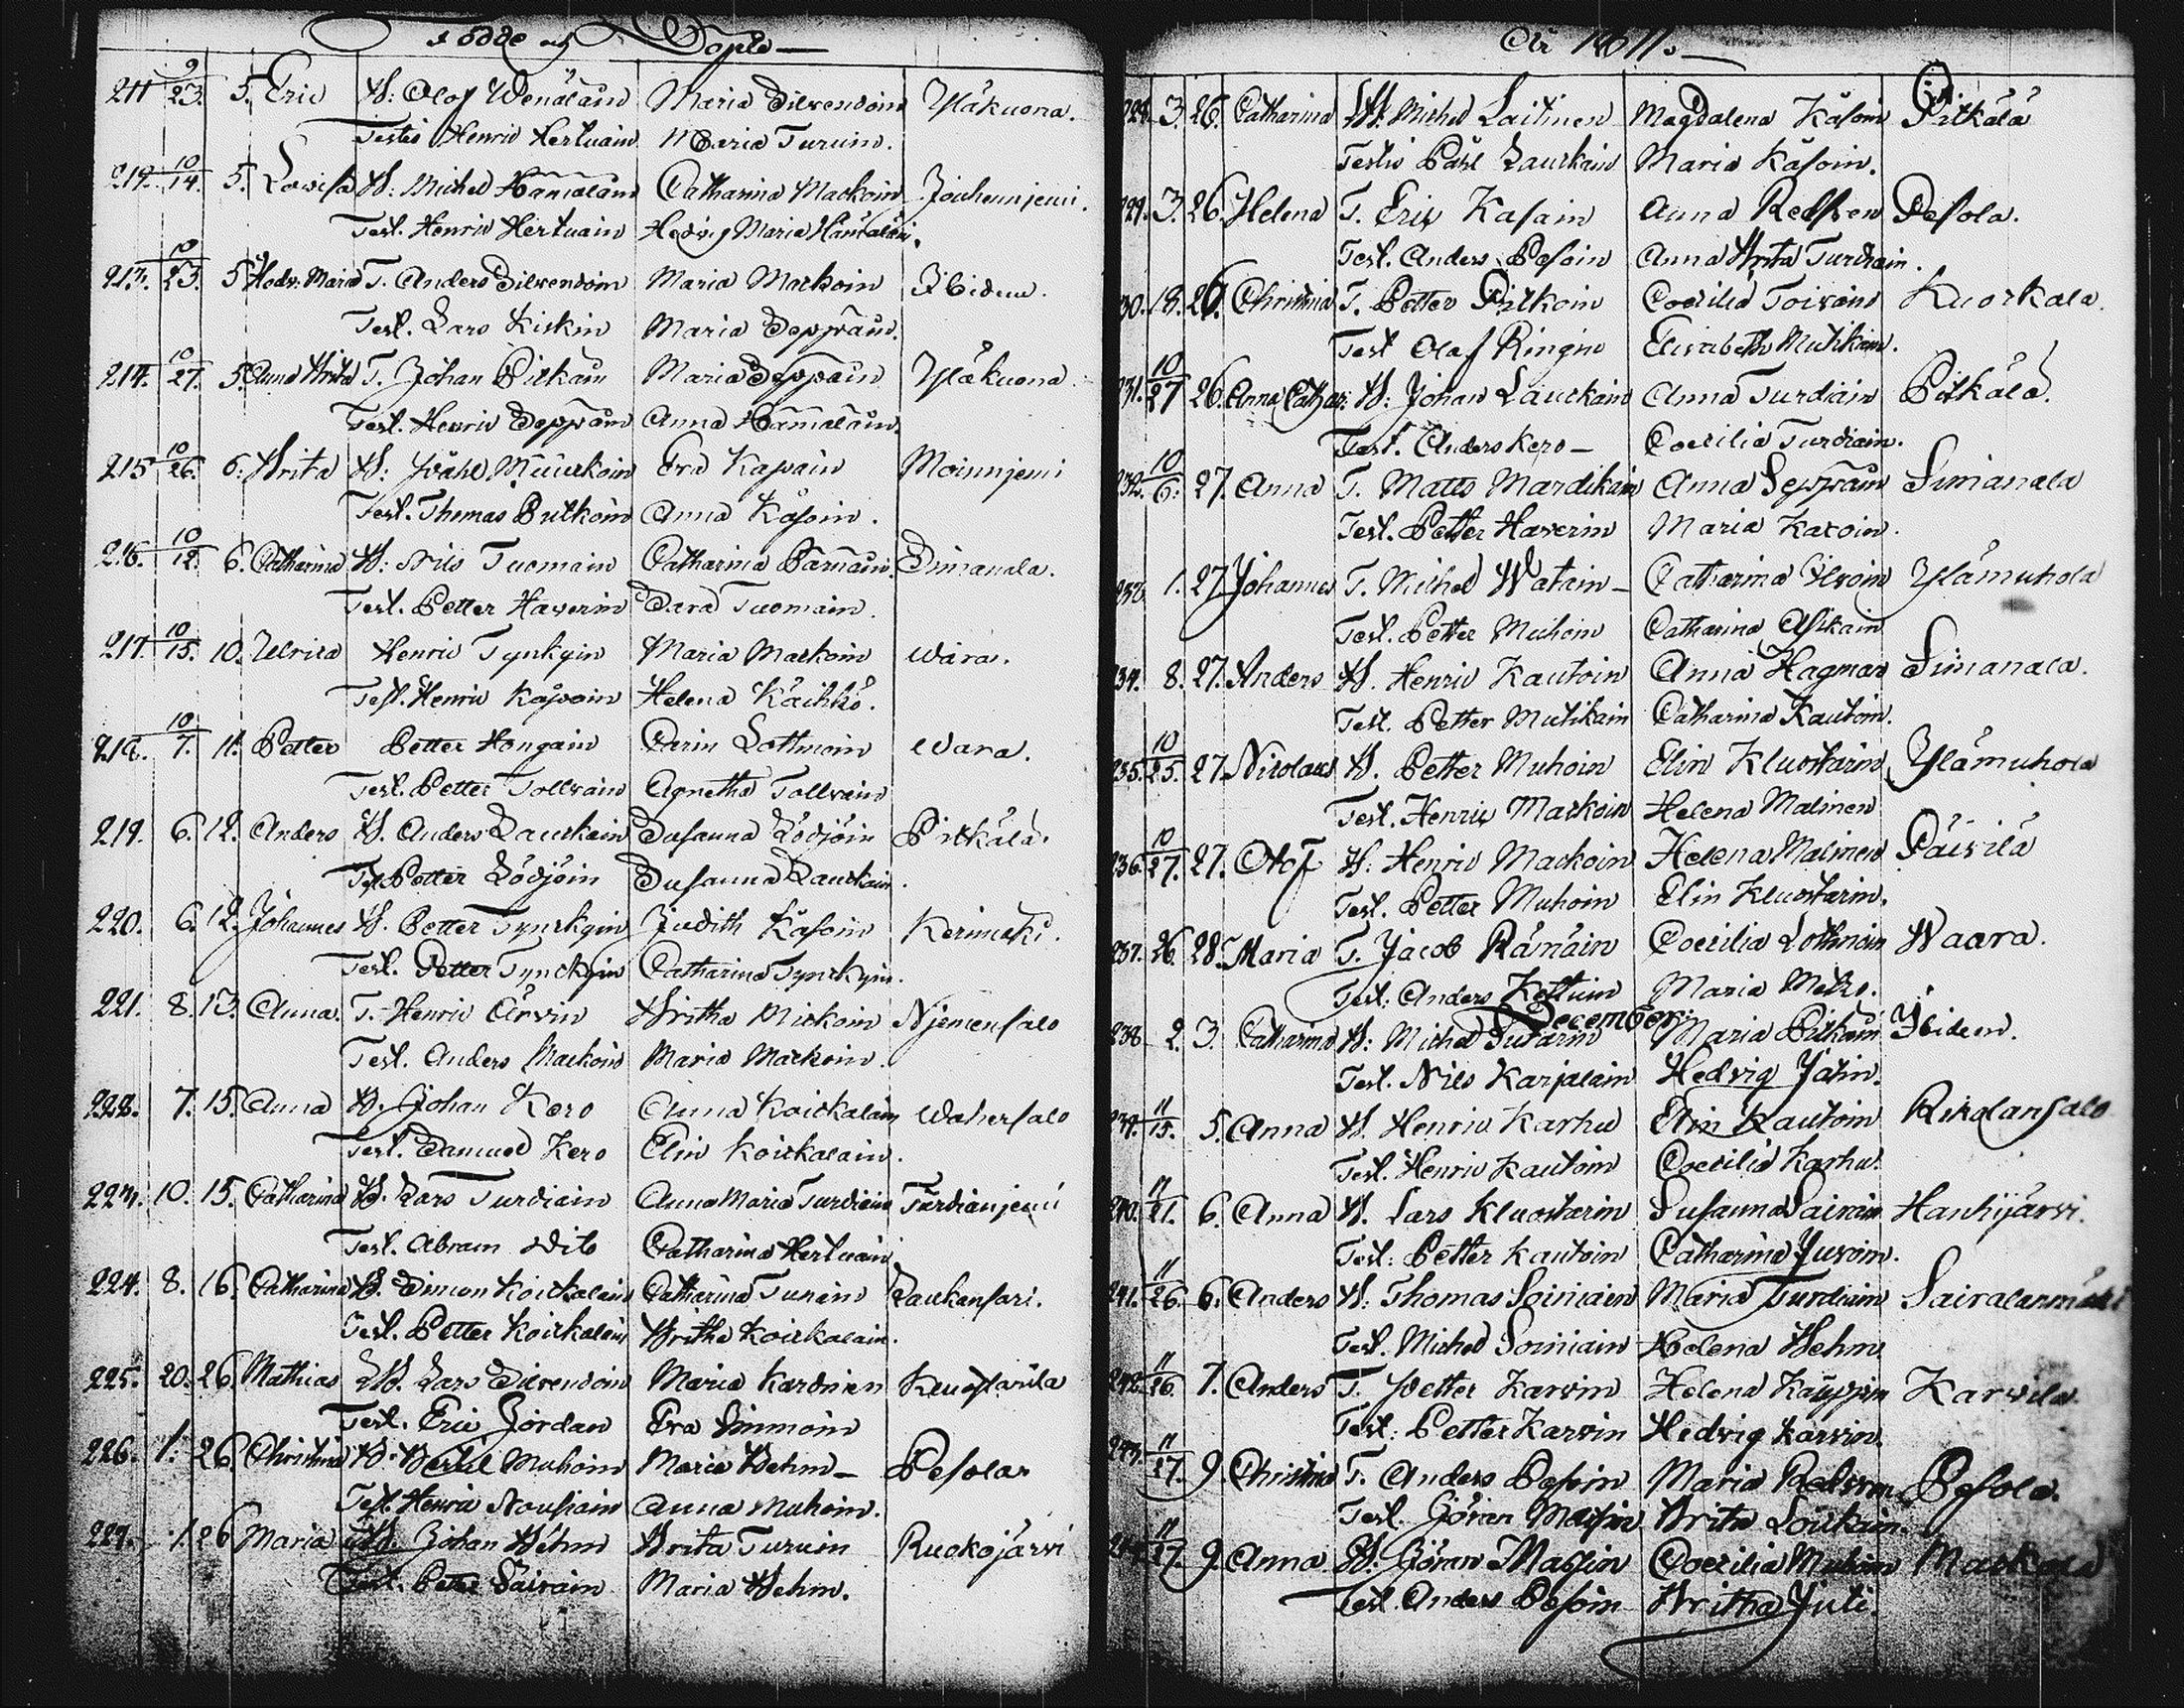 Födde och Döpte
211 9/23. 5. Eric B: Olof Wenäläin Maria Silvendoin Yläkuona.
Testes Henric Hertuain Maria Turuin.
212. 10/14. 5. Lovisa B: Michel Hämäläin Catharina Mackoin Jouhennjemi.
Test. Henric Hertuain Hedvig Maria Hämäläin.
213. 10/23. 5 Hedv: Maria T. Anders Silvendoin Maria Mackoin Ibidem.
Test. Lars Kiskin Maria Seppäin.
214. 10/27. 5. Anna Brita T. Johan Pitkäin Maria Seppäin Yläkuona
Test. Henric Seppäin Anna Hämäläin.
215 10/26. 6. Brita B: Påhl Muckoin Eva Kapain Moinnjemi
Test. Thomas Pulkoin Anna Käsoin.
216. 10/12. 6. Catharina B: Nils Tuomain Catharina Pämäin. Simanala.
Test. Petter Haverin Sara Tuomain.
217. 10/15. 10. Ulrica Henric Tynkyin Maria Mackoin Wara.
Test. Henric Kapain Helena Käihkö.
218. 10/7. 11. Petter Petter Hongain Carin Lottmoin Wara.
Test. Petter Tollvain Agnetha Tollvain
219. 6. 12. Anders B. Anders Lauckain Susanna Lödjöin Pitkälä.
Test. Petter Lödjöin Susanna Lauckain.
220. 6. 12. Johannes B. Petter Tynckyin Judith Käsoin Kerimäki.
Test. Petter Tynckyin Catharina Tynckyin.
221. 8. 13. Anna. T. Henric Årvin Britha Mickoin Njemensalo
Test. Anders Mackoin Maria Mackoin.
222. 7. 15. Anna B. Johan Kero Anna Koickalain Wahersalo
Test. Samuel Kero Elin Koickalain.
223. 10. 15. Catharina B. Lars Turdiain Anna Maria Turdiain Turdianjemi
Test. Abram Dito Catharina Hertuain
224. 8. 16. Catharina B. Simon Koickalain Catharina Tunain Laukansari.
Test. Petter Koickalain Britha Koickalain.
225. 20. 26. Mathias B. Lars Silvendoin Maria Kardinen Kluostarila
Test. Eric Jordan Eva Simmoin
226. 1. 26. Christina B. Bertil Muhoin Maria Behm Pesola.
Test. Henric Nousiain Anna Muhoin.
227. 1. 26 Maria B. Johan Behm Brita Turuin Ruokojärvi
Test. Petter Sairain Maria Behm.
År 1811.
228. 3. 26. Catharina B. Michel Laitinen Magdalena Käsoin Pitkälä
Testes Påhl Lauckain Maria Käsoin.
229. 3. 26. Helena T. Eric Kasain Anna Redsven Pesola.
Test. Anders Pesoin Anna Brita Turdiain.
30. 18. 26. Christina T. Petter Pitkoin Coecilia Toivain Kuorkala.
Test Olof Ringin Elisabeth Mutikain.
231. 10/27 26. Anna Cathar: B: Johan Lauckain Anna Turdiain Pitkälä.
Test. Anders Kero Coecilia Turdiain.
232. 10/6. 27. Anna T. Matts Mardikain Anna Seppäin Simanala
Test. Petter Haverin Maria Katoin.
233. 1. 27. Johannes T. Michel Watain Catharina Ilvoin Ylämuhola
Test. Petter Muhoin Catharina Asikain
234. 8. 27. Anders B. Henric Kautoin Anna Hagman Simanala.
Test. Petter Mutikain Catharina Kautoin.
235. 10/25. 27. Nicolaus B. Petter Muhoin Elin Kluostarin Ylämuhola
Test. Henric Mackoin Helena Malinen
236. 10/27. 27. Olof B: Henric Mackoin Helena Malinen Päivilä
Test. Petter Muhoin Elin Kluostarin.
237. 26. 28. Maria T. Jacob Rämäin Coecilia Lottmoin Waara.
Test. Anders Kettuin Maria Meks.
December
238. 2. 3. Catharina B: Michel Sutarin Maria Pitkäin Ibidem.
Test. Nils Karjalain Hedvig Jätin.
239. 11/15. 5. Anna B. Henric Karhu Elin Kautoin Ritolansalo
Test. Henric Kautoin Coecilia Karhu.
240. 11/21. 6. Anna B. Lars Kluostarin Susanna Sairain Hanhijärvi.
Test. Petter Kautoin Catharina Juvoin.
241. 11/26. 6. Anders B. Thomas Soiniain Maria Turdiain Sairalanmäki
Test. Michel Soiniain Helena Behm.
242. 11/26. 7. Anders T. Petter Karvin Helena Käyppin Karvila
Test. Petter Karvin Hedvig Karvin.
243. 11/27. 9. Christina T. Anders Pesoin Maria Redsven Pesola.
Test. Jöran Massin Brita Loikain.
244. 11/27. 9. Anna B. Jöran Massin Coecilia Muhoin Mackola
Test. Anders Pesoin Britha Juti.